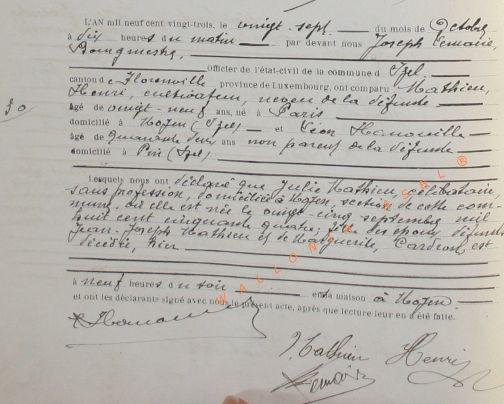 L'AN mil neuf cent vingt-trois, le vingt-sept du mois de Octobre
à dix heures du matin par devant nous Joseph Lemaire,
Bourgmestre,
Officier de l'état-civil de la commune d'Izel,
canton de Florenville province de Luxembourg, ont comparu Mathieu,
Henri, cultivateur, neveu de la défunte
âgé de vingt-neuf ans, né à Paris
domicilié à Moyen (Izel) et Léon
30
âgé de quarante deux ans non parent de la défunte
domicilié à Pin (Izel)
Lesquels nous ont déclaré que Julie Mathieu, célibataire
sans profession, domiciliée à Moyen, section de cette com-
mune où elle est née le vingt-cinq septembre mil
huit cent cinquante quatre; fille des époux défunts
Jean-Joseph Mathieu et de Marguerite, est
décédée, hier
à neuf heures du soir en sa maison à Moyen.
et ont les déclarants signé avec nous le présent acte, après que lecture leur en a été faite.
Mathieu Henri
Lemaire